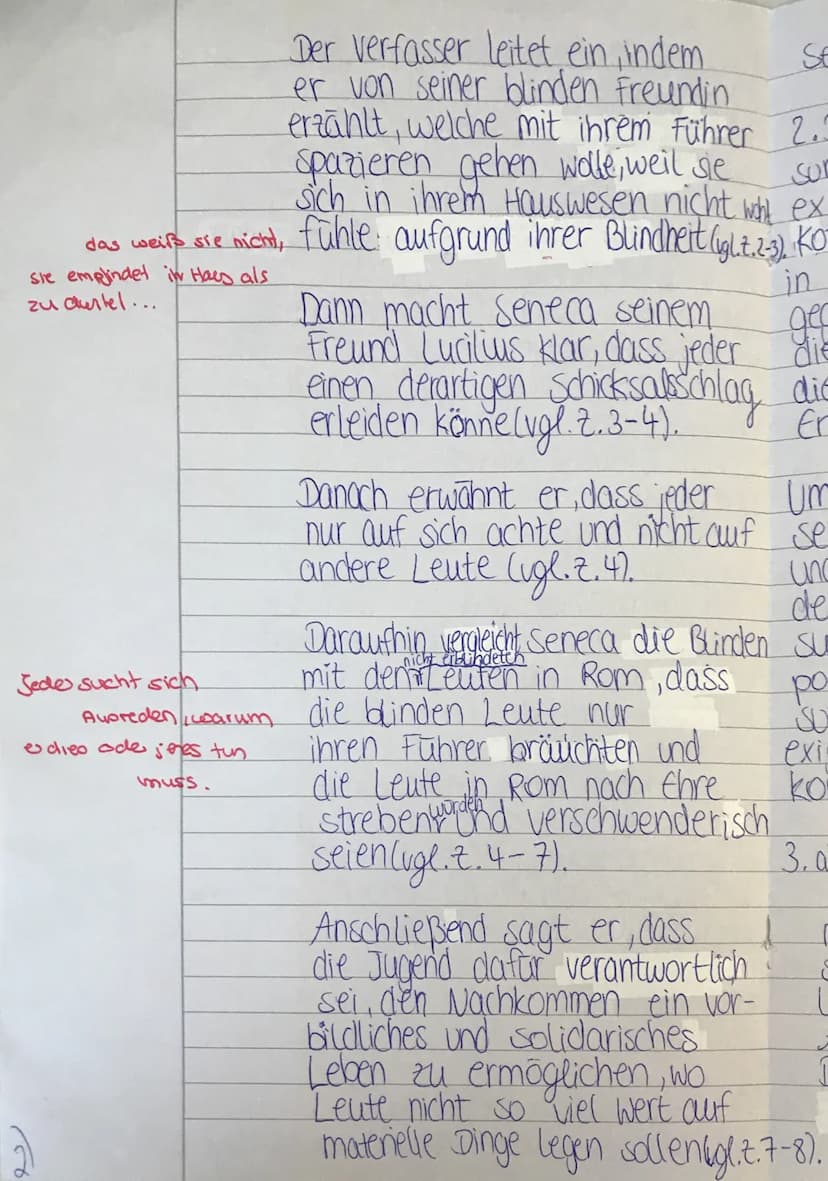 Der Verfasser leitet ein, indem
er von seiner blinden Freundin
erzählt, welche mit ihrem Führer
spazieren gehen wolle, weil sie
sich in ihrem Hauswesen nicht wohl
fühle aufgrund ihrer Blindheit (vgl. Z. 2-3).
das weiß sie nicht,
sie empfindet ihr Haus als
zu dunkel...
Dann macht Seneca seinem
Freund Lucilius klar, dass jeder
einen derartigen Schicksalsschlag
erleiden könne (vgl. Z. 3-4).
Danach erwähnt er, dass jeder
nur auf sich achte und nicht auf
andere Leute (vgl. Z. 4).
Daraufhin vergleicht Seneca die Blinden
nicht erblindeten
mit den Leuten in Rom, dass
die blinden Leute nur
ihren Führer bräuchten und
die Leute in Rom nach Ehre
streben würden und verschwenderisch
seien (vgl. Z. 4-7).
Jeder sucht sich
Ausreden, warum
er dies oder jenes tun
muss.
Anschließend sagt er, dass
die Jugend dafür verantwortlich
sei, den Nachkommen ein vor-
bildliches und solidarisches
Leben zu ermöglichen, wo
Leute nicht so viel wert auf
materielle Dinge legen sollen (vgl. Z. 7-8).
2)
2.
in
die
Um
se
un
de
su
po
su
exi
ko
3. a